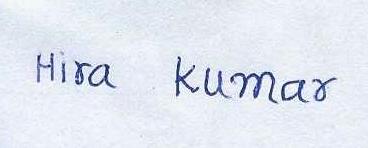 Hira Kumar